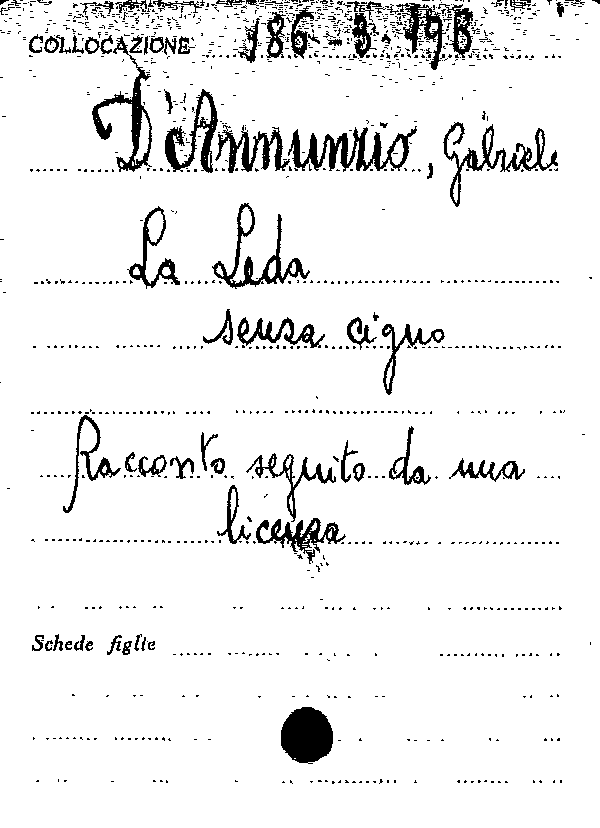 COLLOCAZIONE 186-3-198
D'Annunzio, Gabriele
La Leda
senza cigno
Racconto seguito da una
licenza
Schede figlie